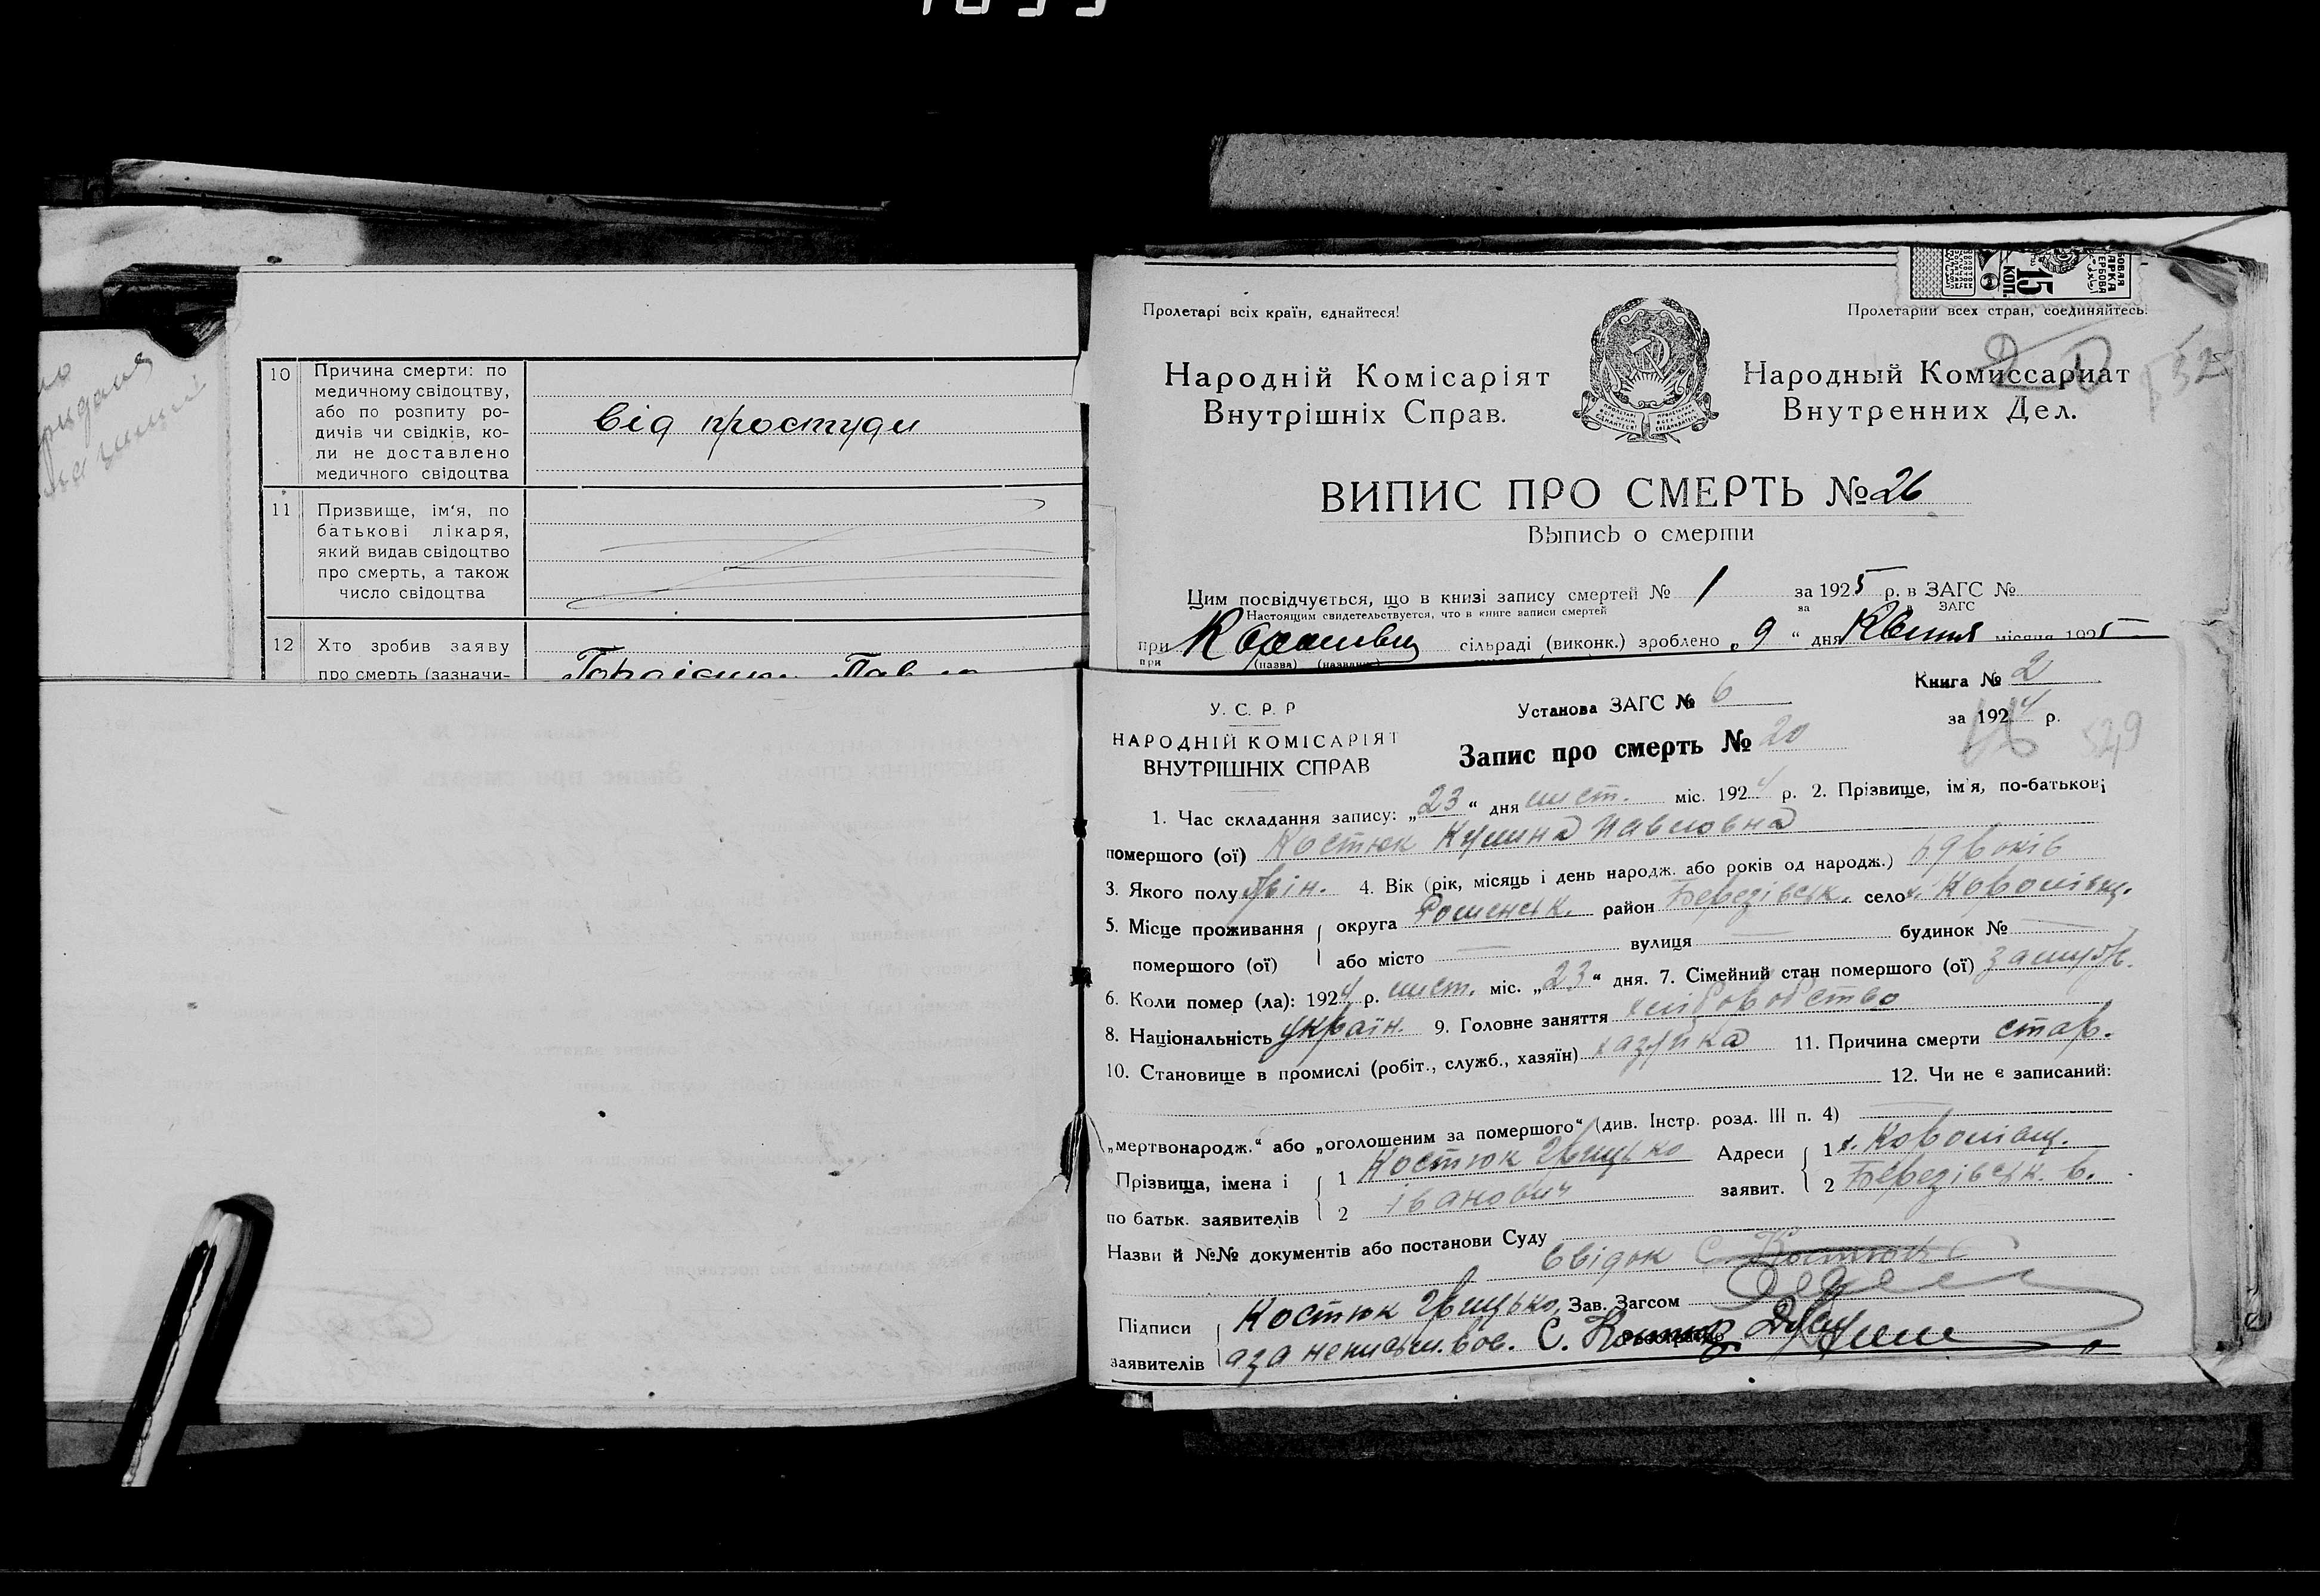 10 Причина смерти: по
медичному свідоцтву,
або по розпиту ро-
дичів чи свідків, ко-
ли не доставлено
медичного свідоцтва
від простуди
11 Призвище, ім'я, по
батькові лікаря,
який видав свідоцтво
про смерть, а також
число свідоцтва
12 Хто зробив заяву
про смерть (зазначи-
15 КОП.
Пролетарі всіх країн, єднайтеся!
Пролетарии всех стран, соединяйтесь!
Народній Комісаріят
Внутрішніх Справ.
Народный Комиссариат
Внутренних Дел.
ВИПИС ПРО СМЕРТЬ № 26
Выпись о смерти
Цим посвідчується, що в книзі запису смертей № 1 за 1925 р. в ЗАГС №
Настоящим свидетельствуется, что в книге записи смертей за в ЗАГС
при сільраді (виконк.) зроблено „9“ дня Квітня місяця 1925
при (назва) (название)
У. С. Р. Р
НАРОДНІЙ КОМІСАРІЯТ
ВНУТРІШНІХ СПРАВ
Установа ЗАГС № 6
Книга № 2
за 1924 р.
529
Запис про смерть № 20
1. Час складання запису: „23“ дня лист. міс. 1924 р. 2. Прізвище, ім'я, по-батькові
помершого (ої) Костюк Кулина Павловна
3. Якого полу жін. 4. Вік (рік, місяць і день народж. або років од народж.) 69 років
5. Місце проживання округа Роменськ. район Березівськ. село х. Коропівщ.
помершого (ої) або місто — вулиця — будинок № —
6. Коли помер (ла): 1924 р. лист. міс. „23“ дня. 7. Сімейний стан помершого (ої) замужн.
8. Національність україн. 9. Головне заняття хліборобство
10. Становище в промислі (робіт., служб., хазяїн) хазяйка 11. Причина смерти стар.
12. Чи не є записаний:
„мертвонародж.“ або „оголошеним за помершого“ (див. Інстр. розд. III п. 4)
Прізвища, імена і 1 Костюк Грицько Адреси 1 х. Коропівщ.
по батьк. заявителів 2 Іванович заявит. 2 Березівськ. р.
Назви й №№ документів або постанови Суду
Свідок С. Костюк
Підписи Костюк Грицько, Зав. Загсом
заявителів а за неписьм. С.